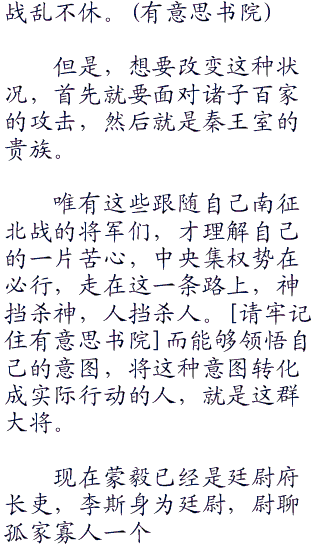 战乱不休。（有意思书院）
但是，想要改变这种状
况，首先就要面对诸子百家
的攻击，然后就是秦王室的
贵族。
唯有这些跟随自己南征
北战的将军们，才理解自己
的一片苦心，中央集权势在
必行，走在这一条路上，神
挡杀神，人挡杀人。[请牢记
住有意思书院]而能够领悟自
己的意图，将这种意图转化
成实际行动的人，就是这群
大将。
现在蒙毅已经是廷尉府
长吏，李斯身为廷尉，尉聊
孤家寡人一个